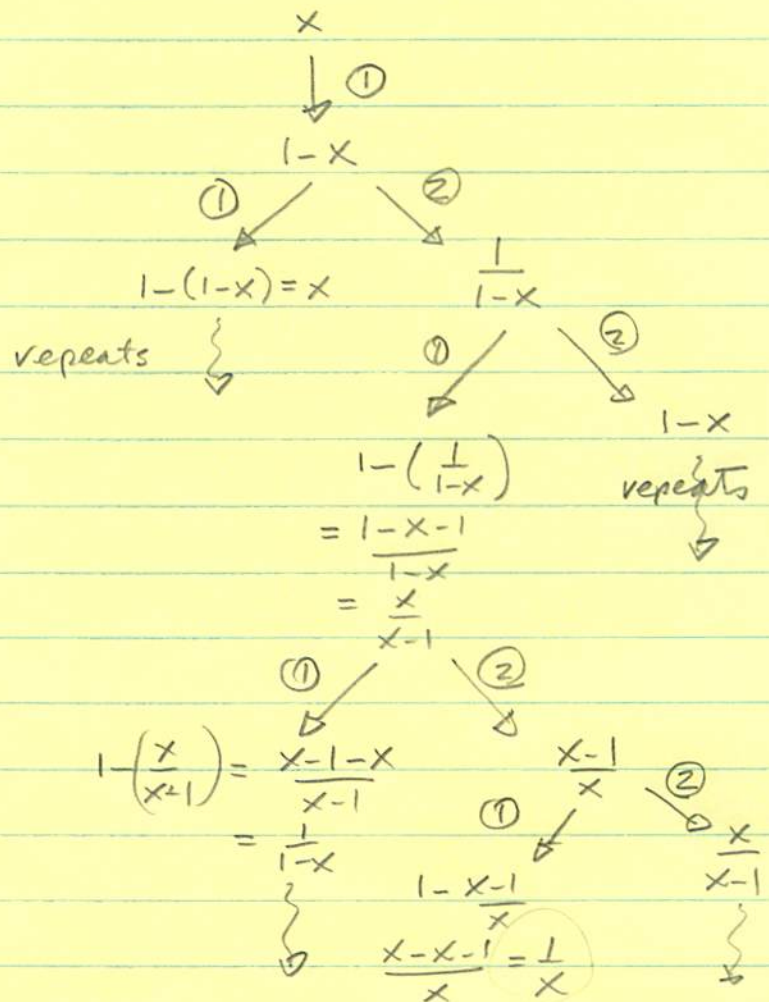 x
①
1-x
① ②
1-(1-x) = x 1/(1-x)
repeats ① ②
1-x
1-(1/(1-x)) repeats
= (1-x-1)/(1-x)
= x/(x-1)
① ②
1-(x/(x-1)) = (x-1-x)/(x-1) (x-1)/x
① ②
= 1/(1-x) x/(x-1)
1- (x-1)/x
(x-x-1)/x = 1/x